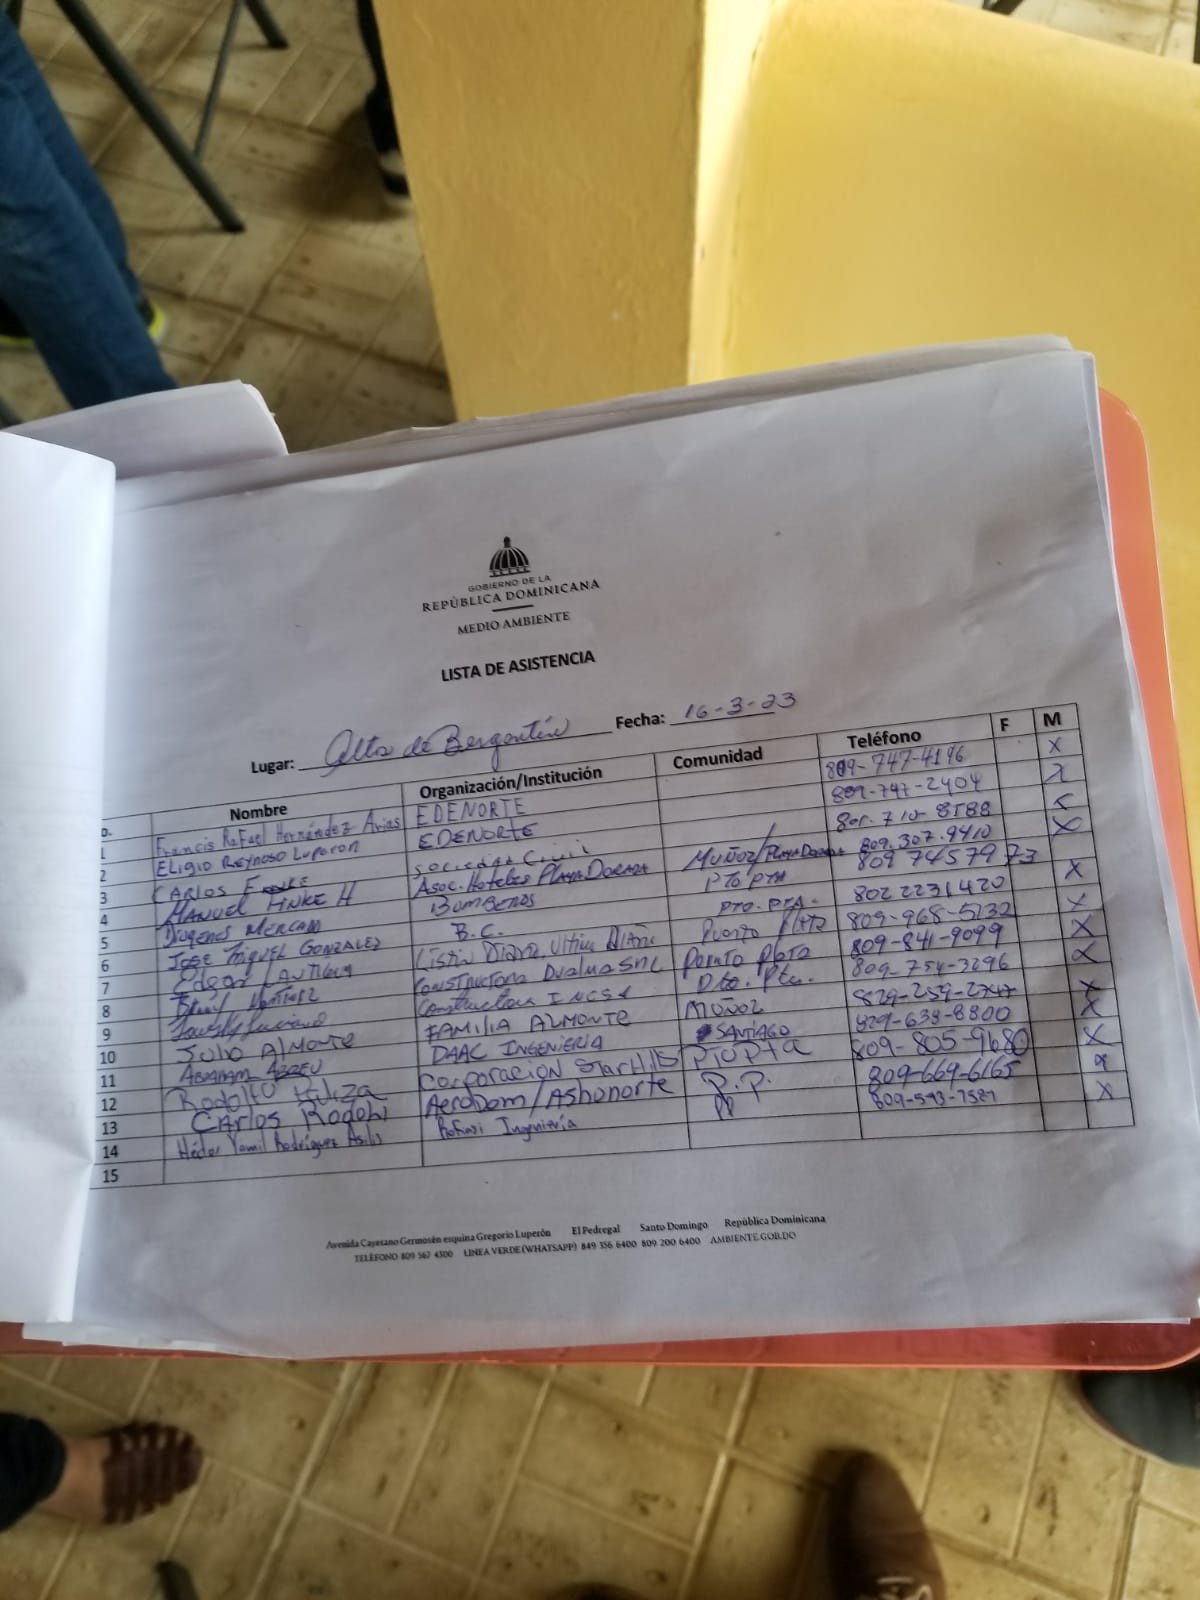 GOBIERNO DE LA
REPÚBLICA DOMINICANA
MEDIO AMBIENTE
LISTA DE ASISTENCIA
Lugar: Alto de Bergantín Fecha: 16-3-23
Nombre Organización/Institución Comunidad Teléfono F M
1 Francis Rafael Hernández Arias EDENORTE 809-747-4196 X
2 Eligio Reynoso Luperon EDENORTE 809-747-2404 X
3 CARLOS FINKE Sociedad Civil 801-710-8188 X
4 MANUEL FINKE H Asoc. Hoteles PLAYA DORADA MUÑOZ/PLAYA DORADA 809.307.9410 X
5 Diogenes MERCADO BOMBEROS PTO PTA 809 74579 73
6 JOSE MIGUEL GONZALEZ B.C. PTO. PTA. 802 2231420 X
7 Edgar LANTIGUA Listin Diario, Ultima Puerto Plata 809-968-5232 X
8 CONSTRUCTORA SRL Puerto Plata 809-841-9099 X
9 Constructora INCSA Pto. Pta. 809-754-3296 X
10 Julio ALMONTE FAMILIA ALMONTE MUÑOZ 829-259- X
11 ABRAHAM ABREU DAAC INGENIERIA SANTIAGO 829-638-8800 X
12 Rodolfo CORPORACION StarHills PtoPta 809-805-9680 X
13 CARLOS Rodohi AeroDom/Ashonorte P.P. 809-669-6165 X
14 Héctor Yamil Rodríguez Ingeniería PP 809-543-7527 X
15
Avenida Cayetano Germosén esquina Gregorio Luperón El Pedregal Santo Domingo República Dominicana
TELÉFONO 809 567 4300 LINEA VERDE (WHATSAPP) 849 356 6400 809 200 6400 AMBIENTE.GOB.DO